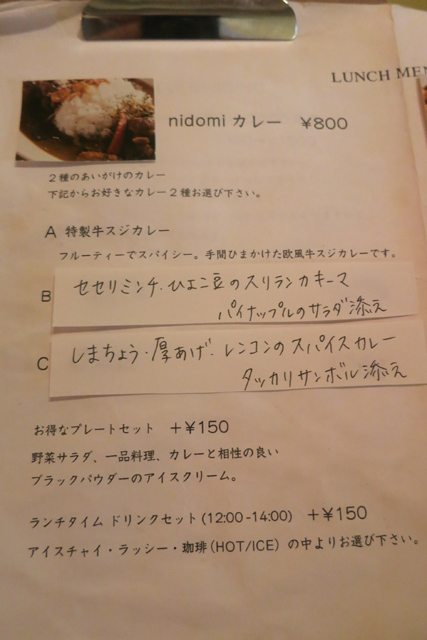 LUNCH MEN
nidomi カレー ¥800
2種のあいがけのカレー
下記からお好きなカレー2種お選び下さい。
A 特製牛スジカレー
フルーティーでスパイシー。手間ひまかけた欧風牛スジカレーです。
B セセリミンチ・ひよこ豆のスリランカキーマ
パイナップルのサラダ添え
C しまちょう・厚あげ・レンコンのスパイスカレー
タッカリサンボル添え
お得なプレートセット +¥150
野菜サラダ、一品料理、カレーと相性の良い
ブラックパウダーのアイスクリーム。
ランチタイム ドリンクセット(12:00-14:00) +¥150
アイスチャイ・ラッシー・珈琲(HOT/ICE) の中よりお選び下さい。